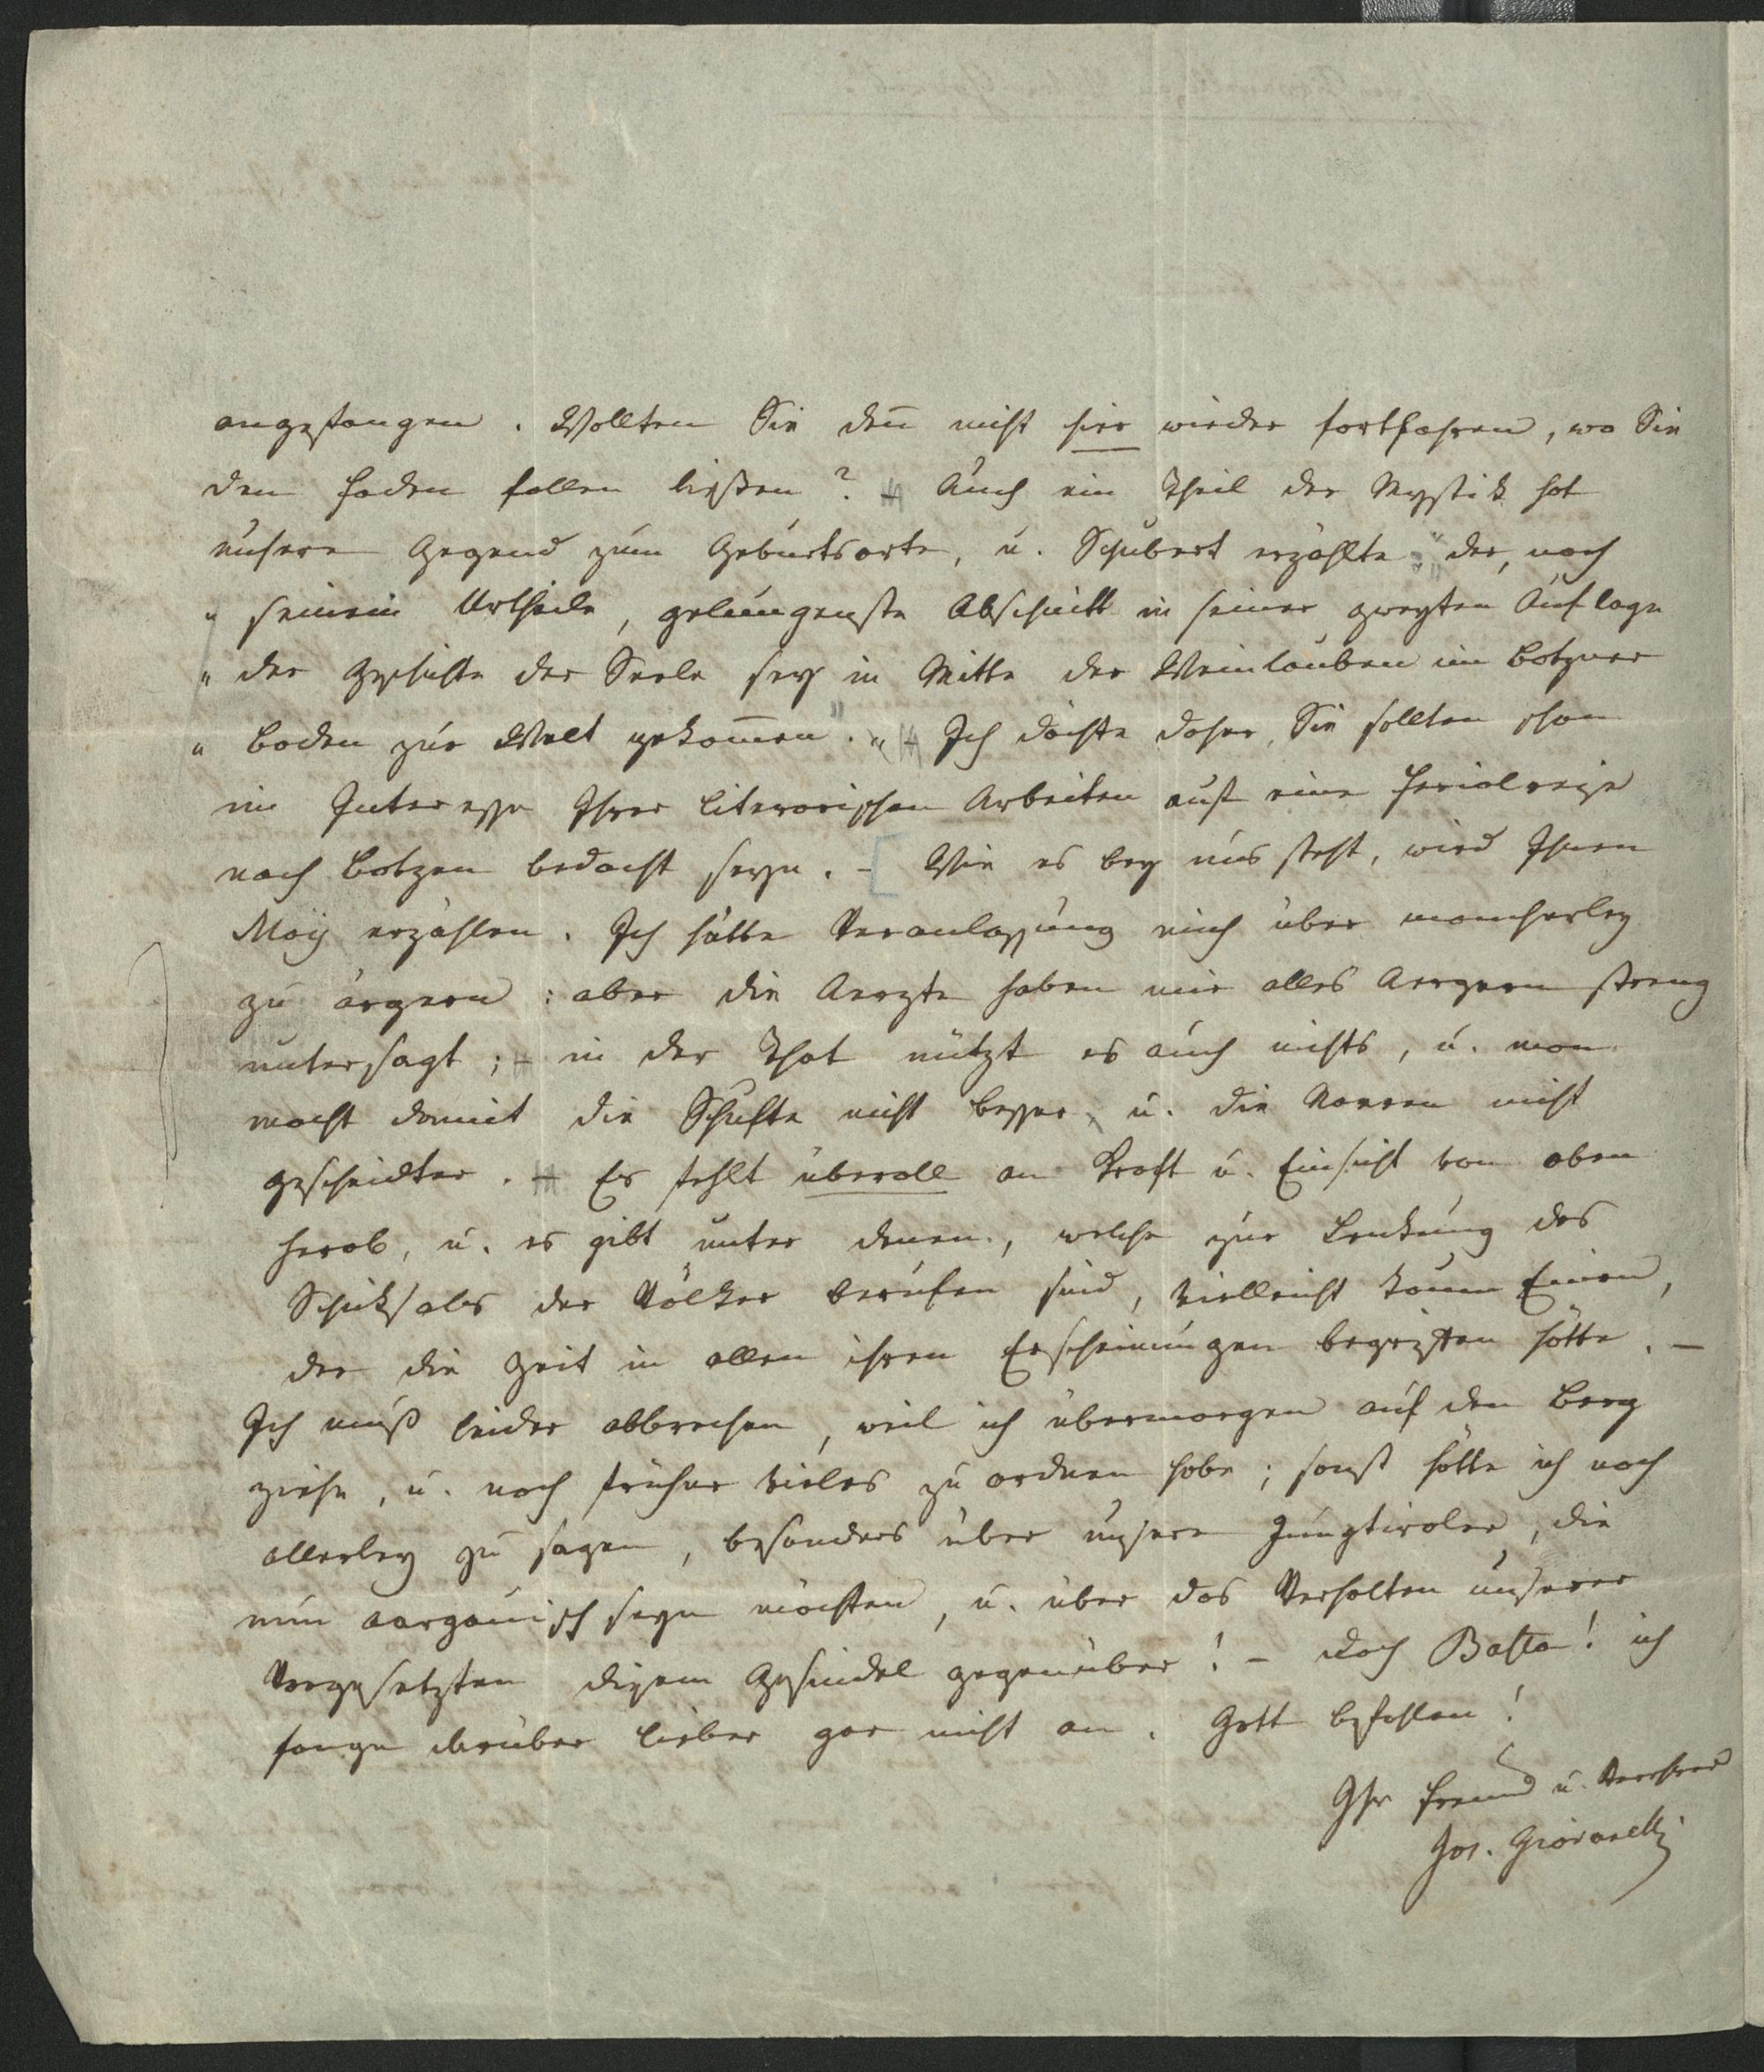 angefangen. Wollten Sie deñ nicht hier wieder fortfahren, wo Sie
den Faden fallen ließen? Auch ein Theil der Mystik hat
unsere Gegend zum Geburtsorte, u. Schubert erzählte „der, nach
„ seinem Urtheile, gelungenste Abschnitt in seiner zweyten Auflage
„ der Geschichte der Seele sey in Mitte der Weinlauben im Botzner
„ Boden zur Welt gekom̄en“. – Ich dächte daher, Sie sollten schon
im Interesse Ihrer literarischen Arbeiten auf eine Ferialreise
nach Botzen bedacht seyn. – [ Wie es bey uns steht, wird Ihnen
Moÿ erzählen. Ich hätte Veranlassung mich über mancherley
zu ärgern: aber die Aerzte haben mir alles Aergern streng
untersagt; – in der That nützt es auch nichts, u. man
macht damit die Schufte nicht besser, u. die Narren nicht
gescheidter. – Es fehlt überall an Kraft u. Einsicht von oben
herab, u. es gibt unter denen, welche zur Lenkung des
Schiksales der Völker berufen sind, vielleicht kaum Einen,
der die Zeit in allen ihren Erscheinungen begriffen hätte. –
Ich muß leider abbrechen, weil ich übermorgen auf den Berg
ziehe, u. noch früher vieles zu ordnen habe; sonst hätte ich noch
allerley zu sagen, besonders über unsere Jungtiroler, die
nun aargauisch seyn möchten, u. über das Verhalten unserer
Vorgesetzten diesem Gesindel gegenüber! – Doch Basta! ich
fange darüber lieber gar nicht an. Gott befohlen!
Ihr Freund u. Verehrer
Jos. Giovanelli